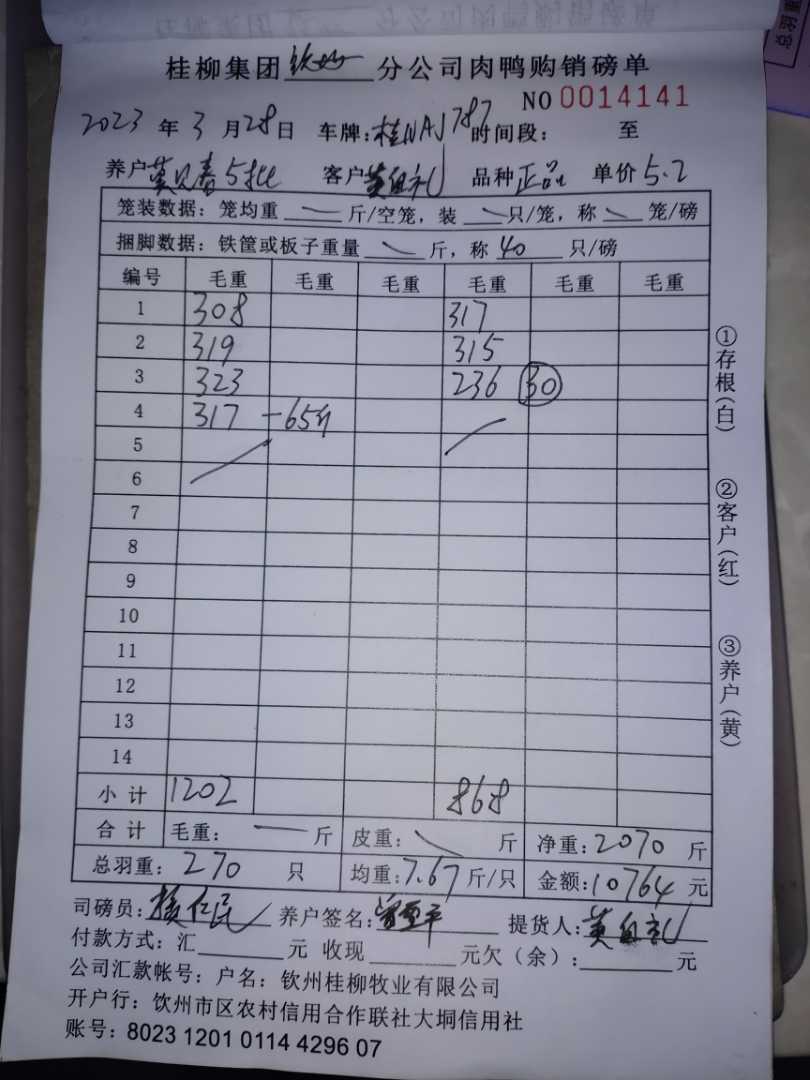 桂柳集团钦州分公司肉鸭购销磅单
NO 0014141
2023年3月28日 车牌:桂NAJ787 时间段: 至
养户 5批 客户黄自礼 品种正品 单价5.2
笼装数据:笼均重 — 斤/空笼,装 — 只/笼,称 — 笼/磅
捆脚数据:铁筐或板子重量 — 斤,称 40 只/磅
编号 毛重 毛重 毛重 毛重 毛重 毛重
1 308 317
2 319 315
3 323 236 30
4 317 -65斤
5
6
7
8
9
10
11
12
13
14
小计 1202 868
合计 毛重: — 斤 皮重: — 斤 净重:2070斤
总羽重:270只 均重:7.67斤/只 金额:10764元
司磅员: 养户签名: 提货人:黄自礼
付款方式:汇 元 收现 元欠(余): 元
公司汇款帐号:户名:钦州桂柳牧业有限公司
开户行:钦州市区农村信用合作联社大垌信用社
账号:8023 1201 0114 4296 07
①存根(白)
②客户(红)
③养户(黄)
总羽重